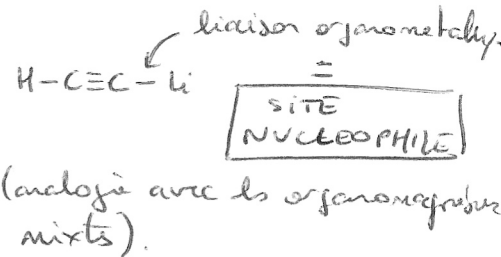 liaison organometaliq.
H-C≡C-Li
=
SITE
NUCLEOPHILE
(analogie avec les organomagnésiens
mixtes).